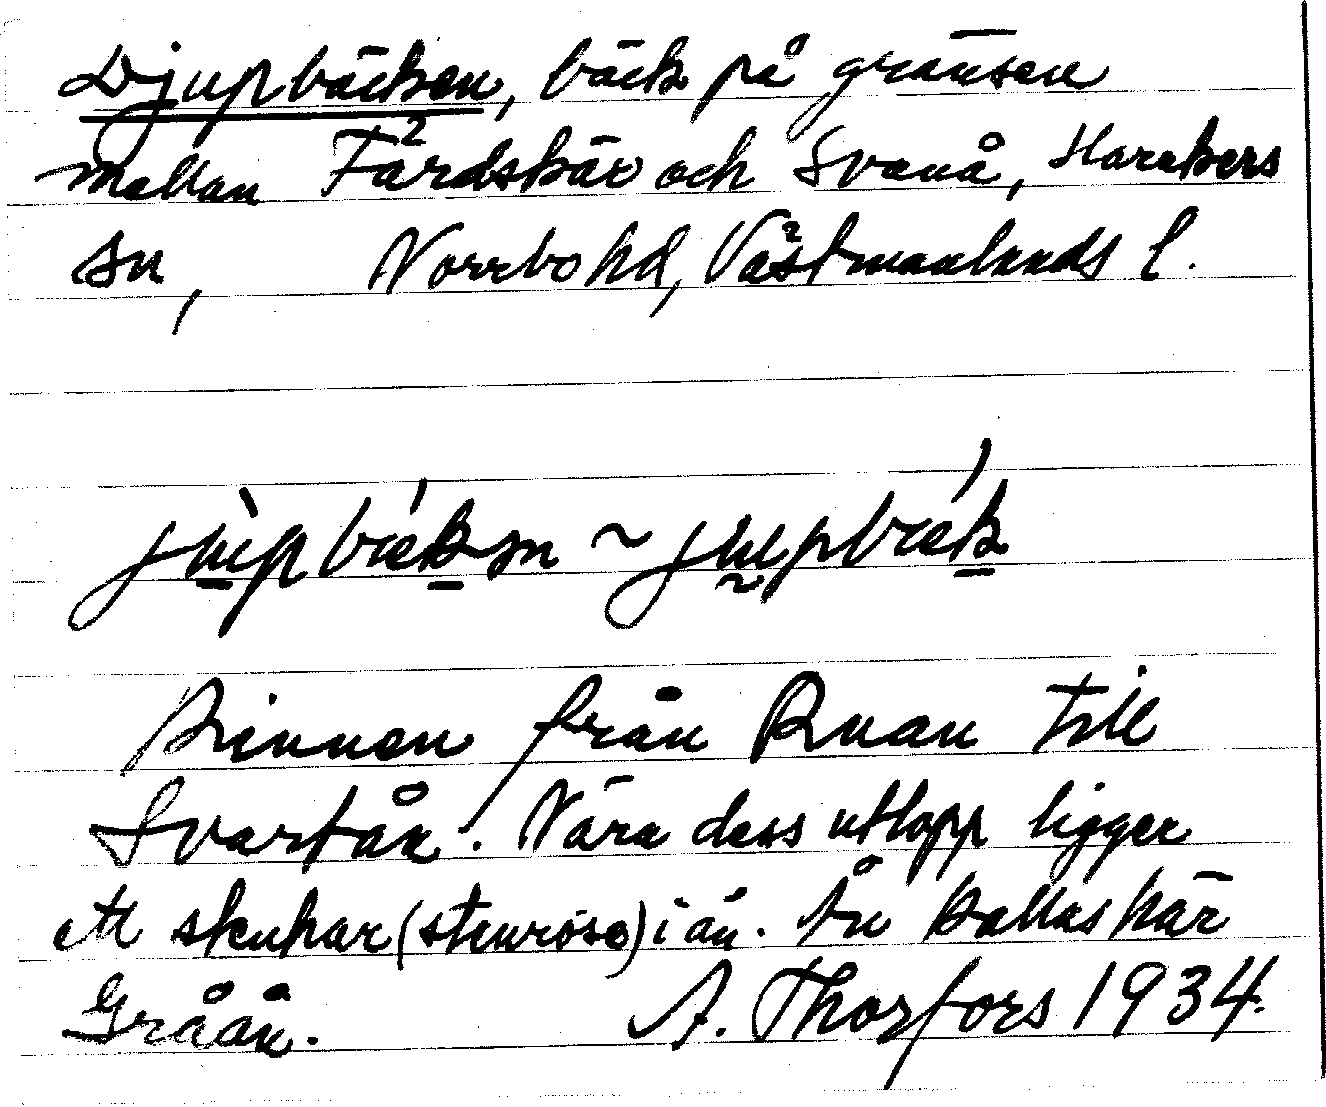 Djupbäcken, bäck på gränsen
mellan Färdskär och Svanå, Harakers
sn, Norrbo hd, Västmanlands l.
Rinner från Ruan till
Svartån. Nära dess utlopp ligger
ett skenhar (stenröse) i ån. Ån kallas här
Gråån. A. Thorfors 1934.